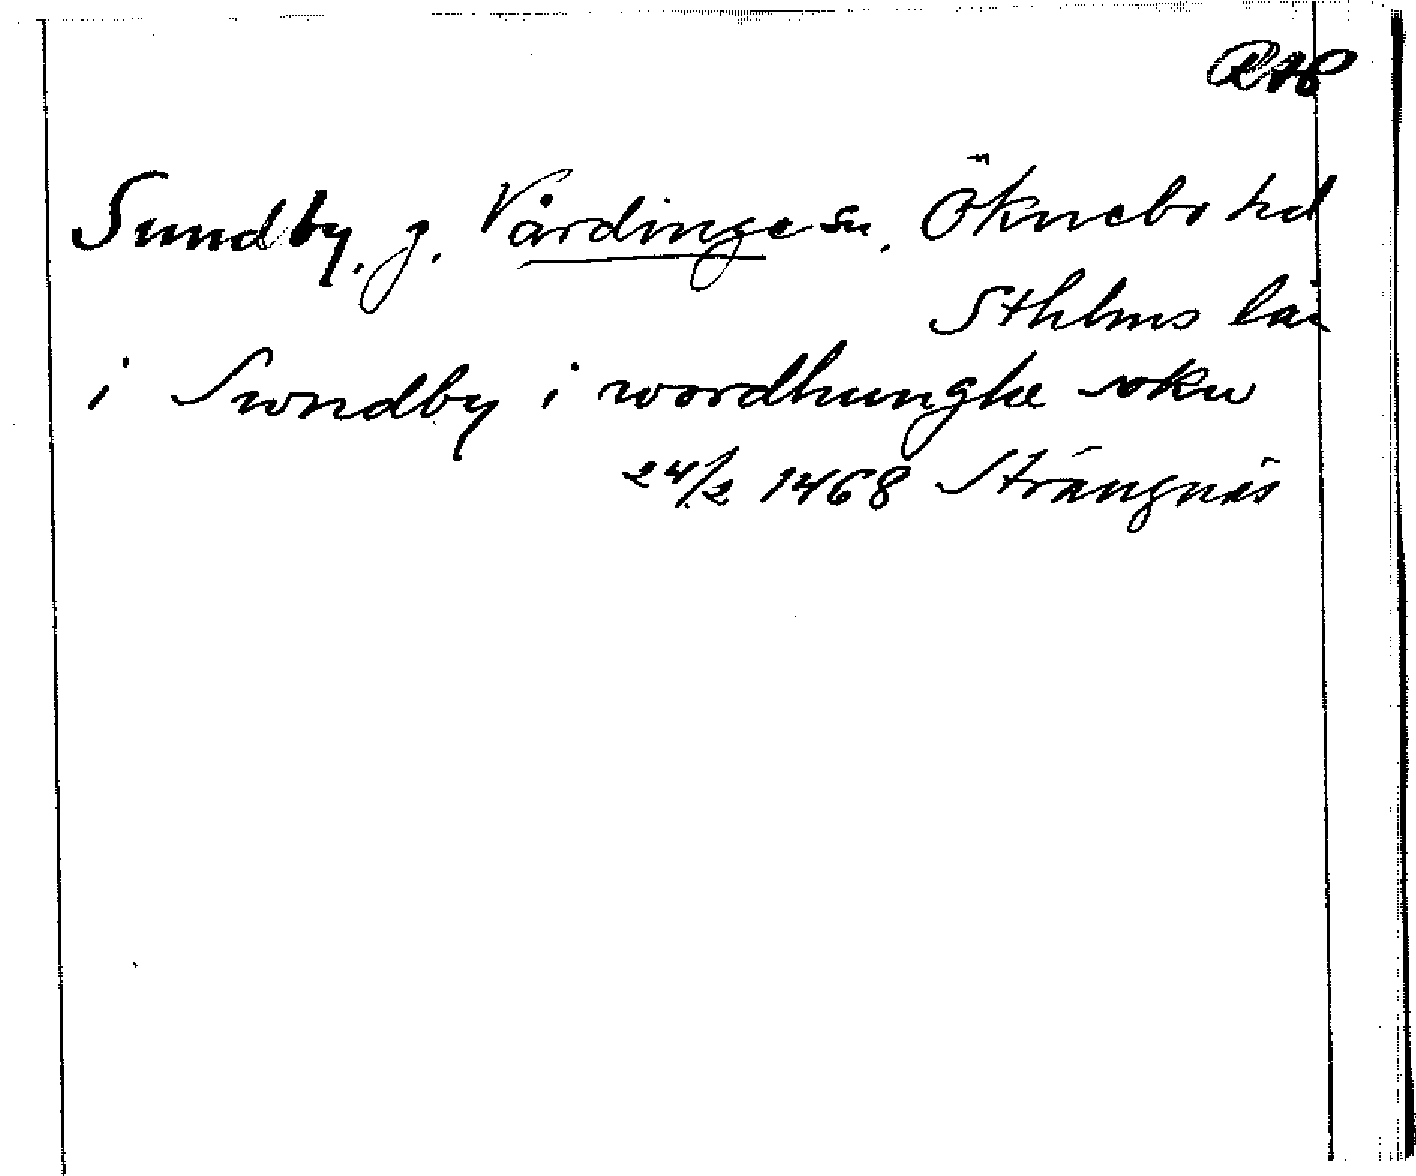 RAP
Sundby, g. Vårdinge sn, Öknebo hd
Sthlms län
i Swndby i wordhunghe sokn
24/2 1468 Strängnäs